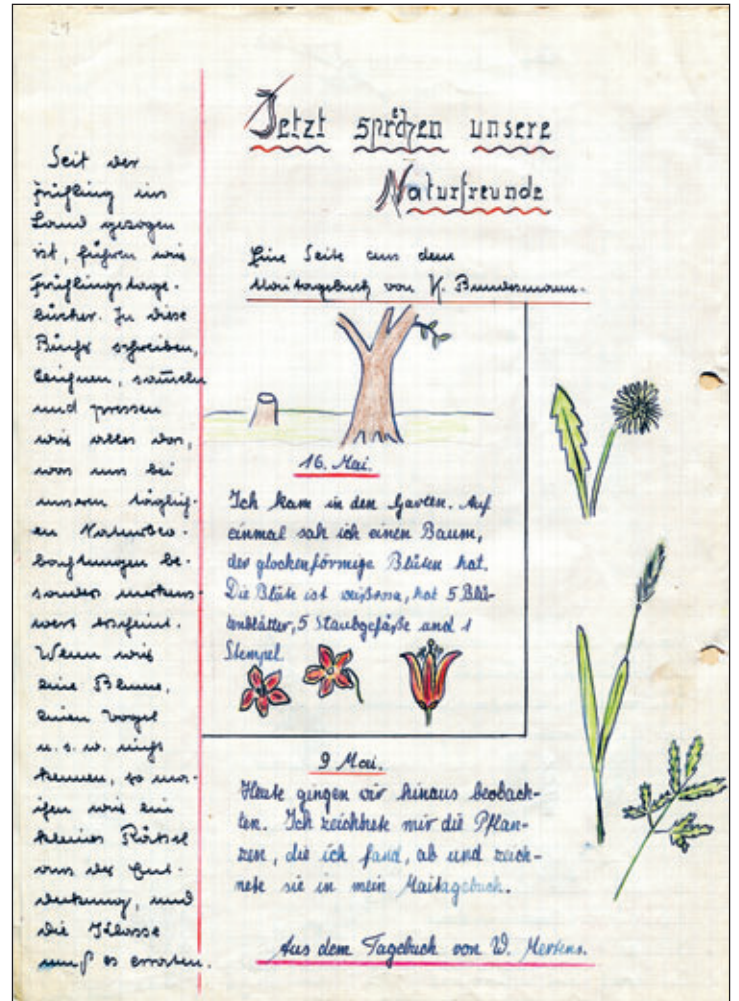 29
Jetzt sprechen unsere
Naturfreunde
Seit der
Frühling ins
Land gezogen
ist, führen wir
Frühlingstage-
bücher. In diese
Bücher schreiben,
zeichnen, sam̅eln
und pressen
wir alles das,
was uns bei
unseren täglich-
en Naturbeo-
bachtungen be-
sonders merkens-
wert erscheint.
Wenn wir
eine Blume,
einen Vogel
u. s. w. nicht
kennen, so ma-
chen wir ein
kleines Rätsel
aus der Ent-
deckung, und
die Klasse
muß es erraten.
Eine Seite aus dem
Maitagebuch von K. Bundesmann.
16. Mai.
Ich kam in den Garten. Auf
einmal sah ich einen Baum,
der glockenförmige Blüten hat.
Die Blüte ist weißrosa, hat 5 Blü-
tenblätter, 5 Staubgefäße und 1
Stempel.
9 Mai.
Heute gingen wir hinaus beobach-
ten. Ich zeichnete mir die Pflan-
zen, die ich fand, ab und zeich-
nete sie in mein Maitagebuch.
Aus dem Tagebuch von W. Mertens.